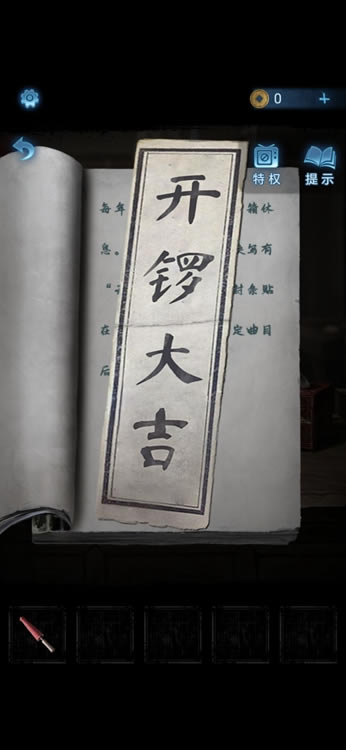 0
特权
提示
开锣大吉
每年 箱休
息。 写有
封条贴
在 定曲目
后